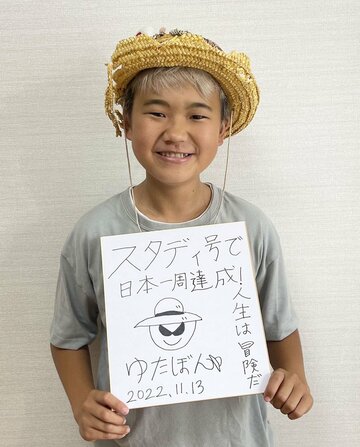 スタディ号で
日本一周達成!
人生は冒険だ
ゆたぼん
2022.11.13